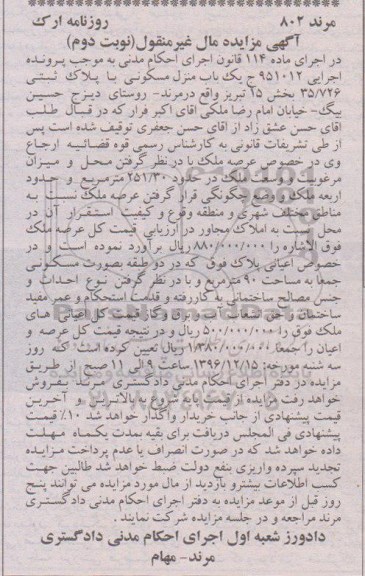 مرند ۸۰۲ روزنامه ارک
آگهی مزایده مال غیرمنقول(نوبت دوم)
در اجرای ماده ۱۱۴ قانون اجرای احکام مدنی به موجب پرونده
اجرایی ۹۵۱۰۱۲ ج یک باب منزل مسکونی با پلاک ثبتی
۳۵/۷۲۶ بخش ۲۵ تبریز واقع درمرند- روستای دیزج حسین
بیگ- خیابان امام رضا ملکی اقای اکبر فرار که در قبال طلب
اقای حسن عشق زاد از اقای حسن جعفری توقیف شده است پس
از طی تشریفات قانونی به کارشناس رسمی قوه قضائیه ارجاع
وی در خصوص عرصه ملک با در نظر گرفتن محل و میزان
مرغوبیت و وسعت ملک در حدود ۲۵۱/۳۰ مترمربع و حدود
اربعه ملک و وضع چگونگی قرار گرفتن عرصه ملک نسبت به
مناطق مختلف شهری و منطقه وقوع و کیفیت استقرار آن در
محل نسبت به املاک مجاور در ارزیابی قیمت کل عرصه ملک
فوق الاشاره را ۸۸۰/۰۰۰/۰۰۰ ریال برآورد نموده است و در
خصوص اعیانی پلاک فوق که در دو طبقه بصورت مسکونی
جمعا به مساحت ۹۰ مترمربع و با در نظر گرفتن نوع احداث و
جنس مصالح ساختمانی به کاررفته و قدمت استحکام و عمر مفید
ساختمان و حق انشعابات آب و برق و گاز قیمت کل اعیانی های
ملک فوق را ۵۰۰/۰۰۰/۰۰۰ ریال و در نتیجه قیمت کل عرصه و
اعیان را جمعا ۱/۳۸۰/۰۰۰/۰۰۰ ریال تعیین کرده است که روز
سه شنبه مورخه ۱۳۹۶/۱۲/۱۵ ساعت ۹ الی ۱۱ صبح از طریق
مزایده در دفتر اجرای احکام مدنی دادگستری مرند بفروش
خواهد رفت مزایده از قیمت پایه شروع به بالاترین و آخرین
قیمت پیشنهادی از جانب خریدار واگذار خواهد شد ۱۰٪ قیمت
پیشنهادی فی المجلس دریافت برای بقیه بمدت یکماه مهلت
داده خواهد شد که در صورت انصراف یا عدم پرداخت مزایده
تجدید سپرده واریزی بنفع دولت ضبط خواهد شد طالبین جهت
کسب اطلاعات بیشترو بازدید از مال مورد مزایده می توانند پنج
روز قبل از موعد مزایده به دفتر اجرای احکام مدنی دادگستری
مرند مراجعه و در جلسه مزایده شرکت نمایند .
دادورز شعبه اول اجرای احکام مدنی دادگستری
مرند- مهام